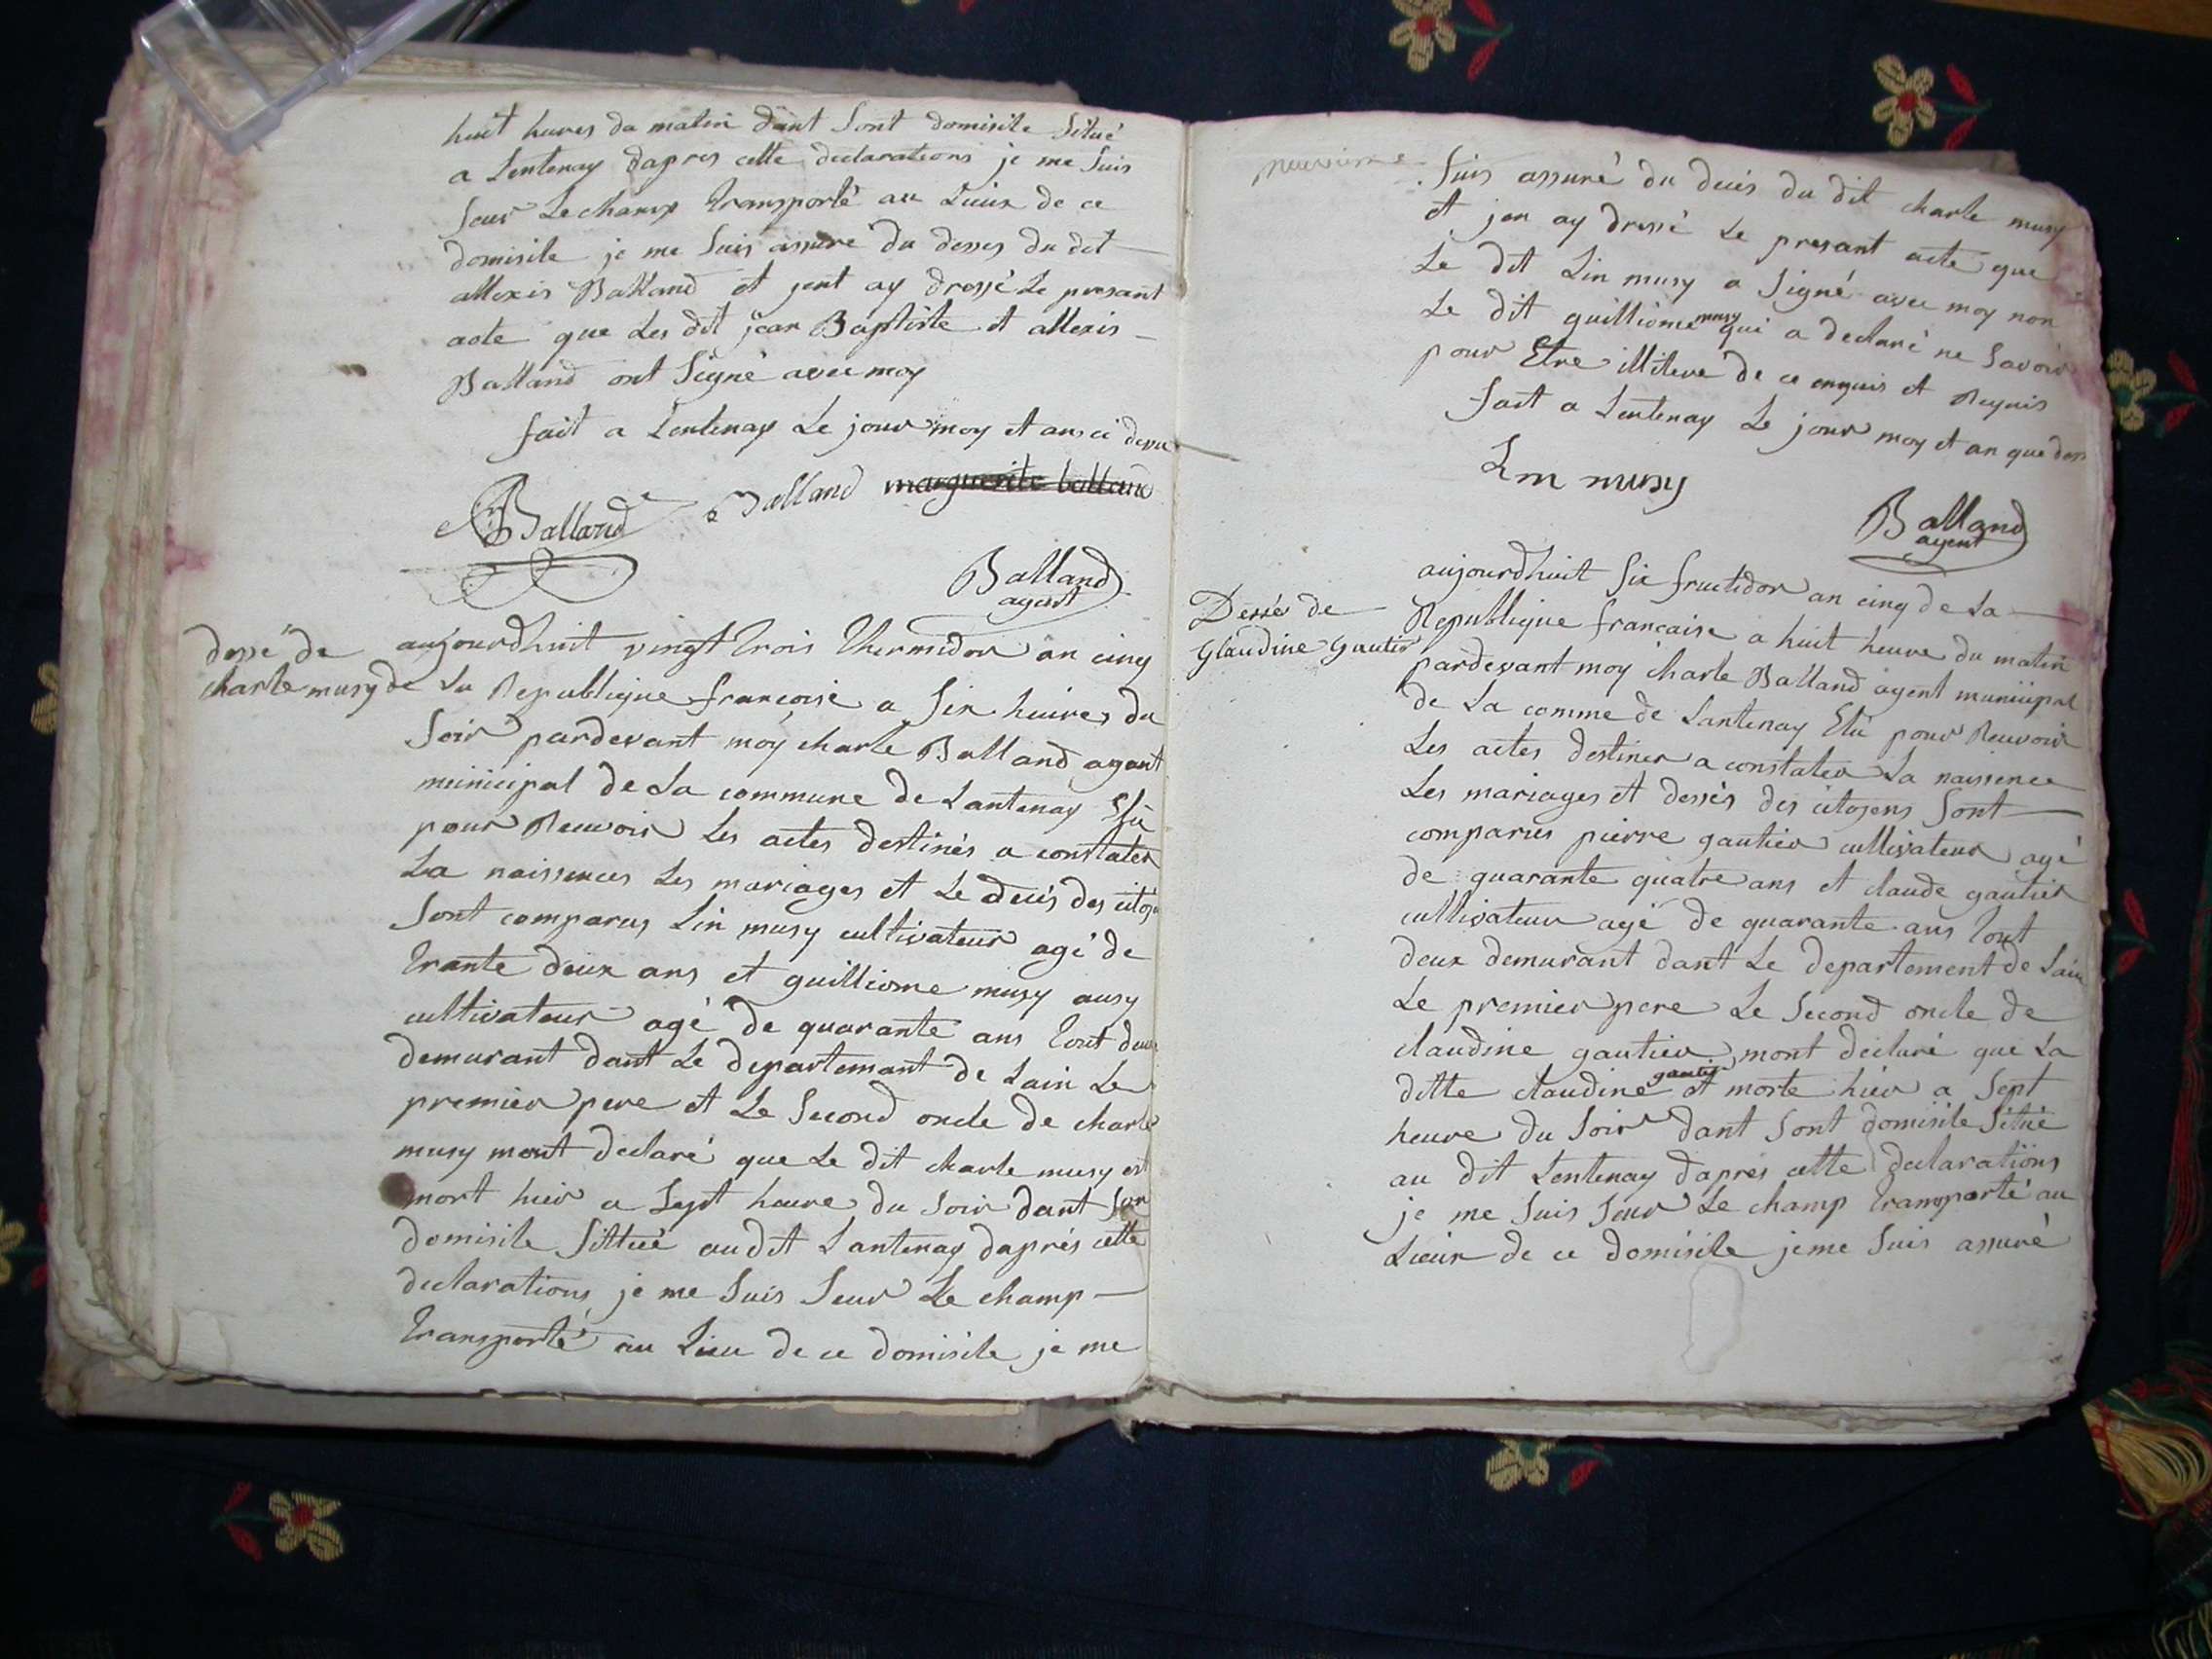 huit hures du matin dant sont domisile situé
a Lentenay dapres cette declarations je me suis
seur Le champ transporté au Lieux de ce
domisile je me suis assuré du desses du dit
allexis Balland et jent ay dressé Le presant
acte que Les dit jean Baptiste et allexis
Balland ont signé avec moy
fait a Lentenay Le jour moy et ans ci dessu
Balland Balland marguerite balland
Balland
agent
dessé de
charle musy
aujourdhuit vingt trois thermidor an cinq
de La Republique francoise a six huires du
soir pardevant moy charle Balland agant
municipal de La commune de Lantenay Elu
pour Recevoir Les actes destinés a constater
La naissences Les mariages et Le decés des citoye
sont comparus Lin musy cultivateur agé de
trante deux ans et guilliome musy ausy
cultivateur agé de quarante ans tout deux
demurant dant Le departemant de Lain Le
premier pere et Le second oncle de charle
musy mont declaré que Le dit charle musy est
mort hier a sept heure du soir dant son
domisile sittué audit Lantenay daprés cette
declarations je me suis seur Le champ
transporté au Lieu de ce domisile je me
suis assuré du decés du dit charle musy
et jen ay dressé Le presant acte que
Le dit Lin musy a signé avec moy non
Le dit guilliome musy qui a declaré ne savoir
pour Etre illitere de ce enquis et Requis
fait a Lentenay Le jour moy et an que dess
Lin musy
Balland
agent
Dessés de
Glaudine Gautier
aujourdhuit six fructidor an cinq de La
Republique francaise a huit heure du matin
pardevant moy charle Balland agent municipal
de La comme de Lantenay Elu pour Recevoir
Les actes destines a constater La naissence
Les mariages et dessés des citoyens sont
comparues pierre gautier cultivateur agé
de quarante quatre ans et claude gautier
cultivateur agé de quarante ans tout
deux demurant dant Le departement de Lain
Le premier pere Le second oncle de
claudine gautier mont declaré que La
ditte claudine gautier et morte hier a sept
heure du soir dant sont domisile situé
au dit Lentenay daprés cette declarations
je me suis seur Le champ transporté au
Lieux de ce domisile je me suis assuré